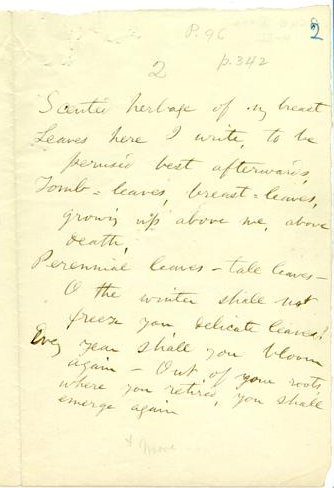 P. 96
2
p. 342
2
Scented herbage of my breast
Leaves here I write, to be
perused best afterwards,
Tomb-leaves, breast-leaves,
growing up above me, above
death,
Perennial leaves – tall leaves –
O the winter shall not
freeze you, delicate leaves!
Every year shall you bloom
again – Out of your roots
where you retired, you shall
emerge again